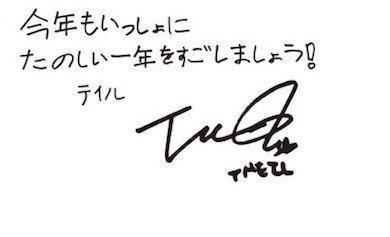 今年もいっしょに
たのしい一年をすごしましょう!
テイル